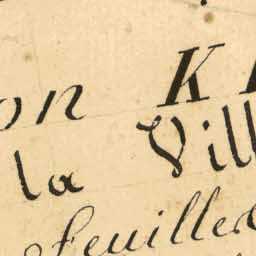 on K
la Vill
feuilled